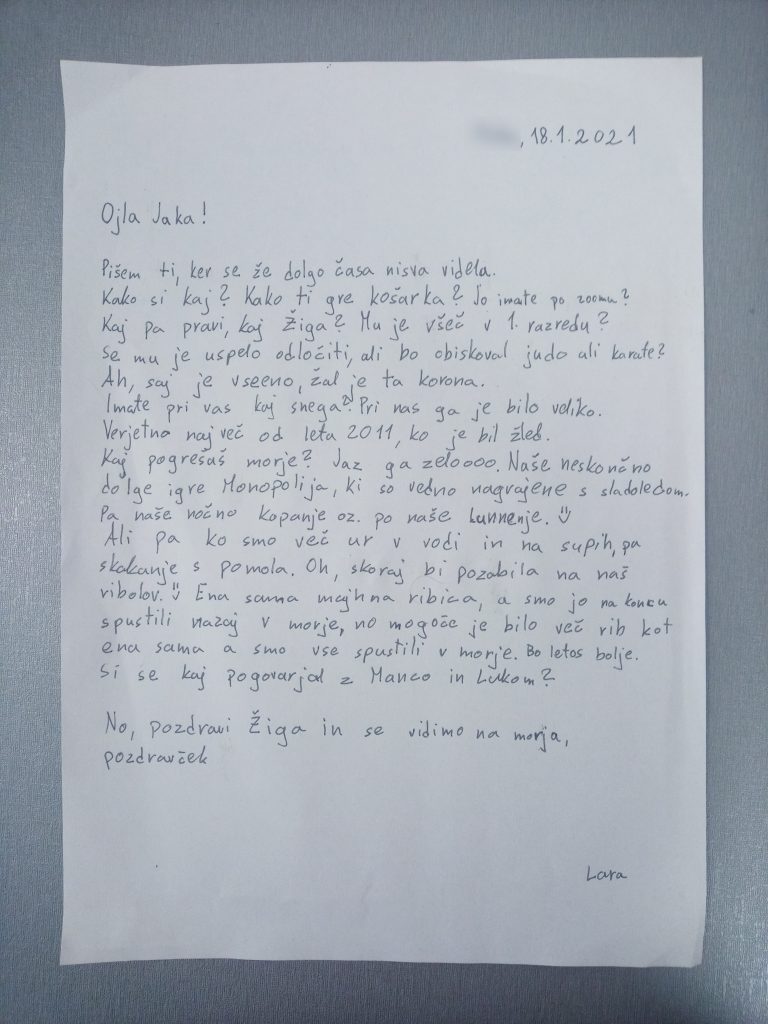 , 18.1.2021
Ojla Jaka!
Pišem ti, ker se že dolgo časa nisva videla.
Kako si kaj? Kako ti gre košarka? Jo imate po zoomu?
Kaj pa pravi, kaj Žiga? Mu je všeč v 1. razredu?
Se mu je uspelo odločiti, ali bo obiskoval judo ali karate?
Ah, saj je vseeno, žal je ta korona.
Imate pri vas kaj snega? Pri nas ga je bilo veliko.
Verjetno največ od leta 2011, ko je bil žled.
Kaj pogrešaš morje? Jaz ga zeloooo. Naše neskončno
dolge igre Monopolija, ki so vedno nagrajene s sladoledom.
Pa naše nočno kopanje oz. po naše
Ali pa ko smo več ur v vodi in na supih, pa
skakanje s pomola. Oh, skoraj bi pozabila na naš
ribolov. Ena sama majhna ribica, a smo jo na koncu
spustili nazaj v morje, no mogoče je bilo več rib kot
ena sama a smo vse spustili v morje. Bo letos bolje.
Si se kaj pogovarjal z Manco in Lukom?
No, pozdravi Žiga in se vidimo na morja,
pozdravček
Lara